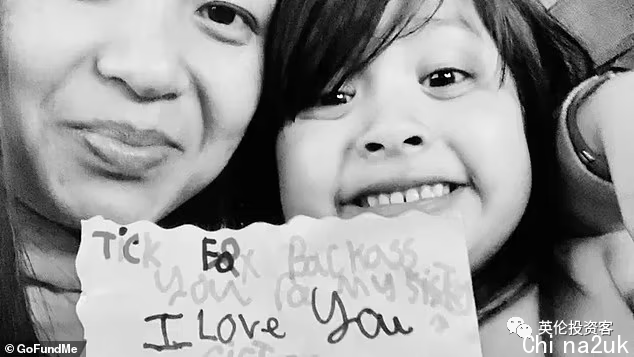 Tick Box Backass
You for my Sister
I Love You
sister
© GoFundMe
英伦投资客
Chi na2uk